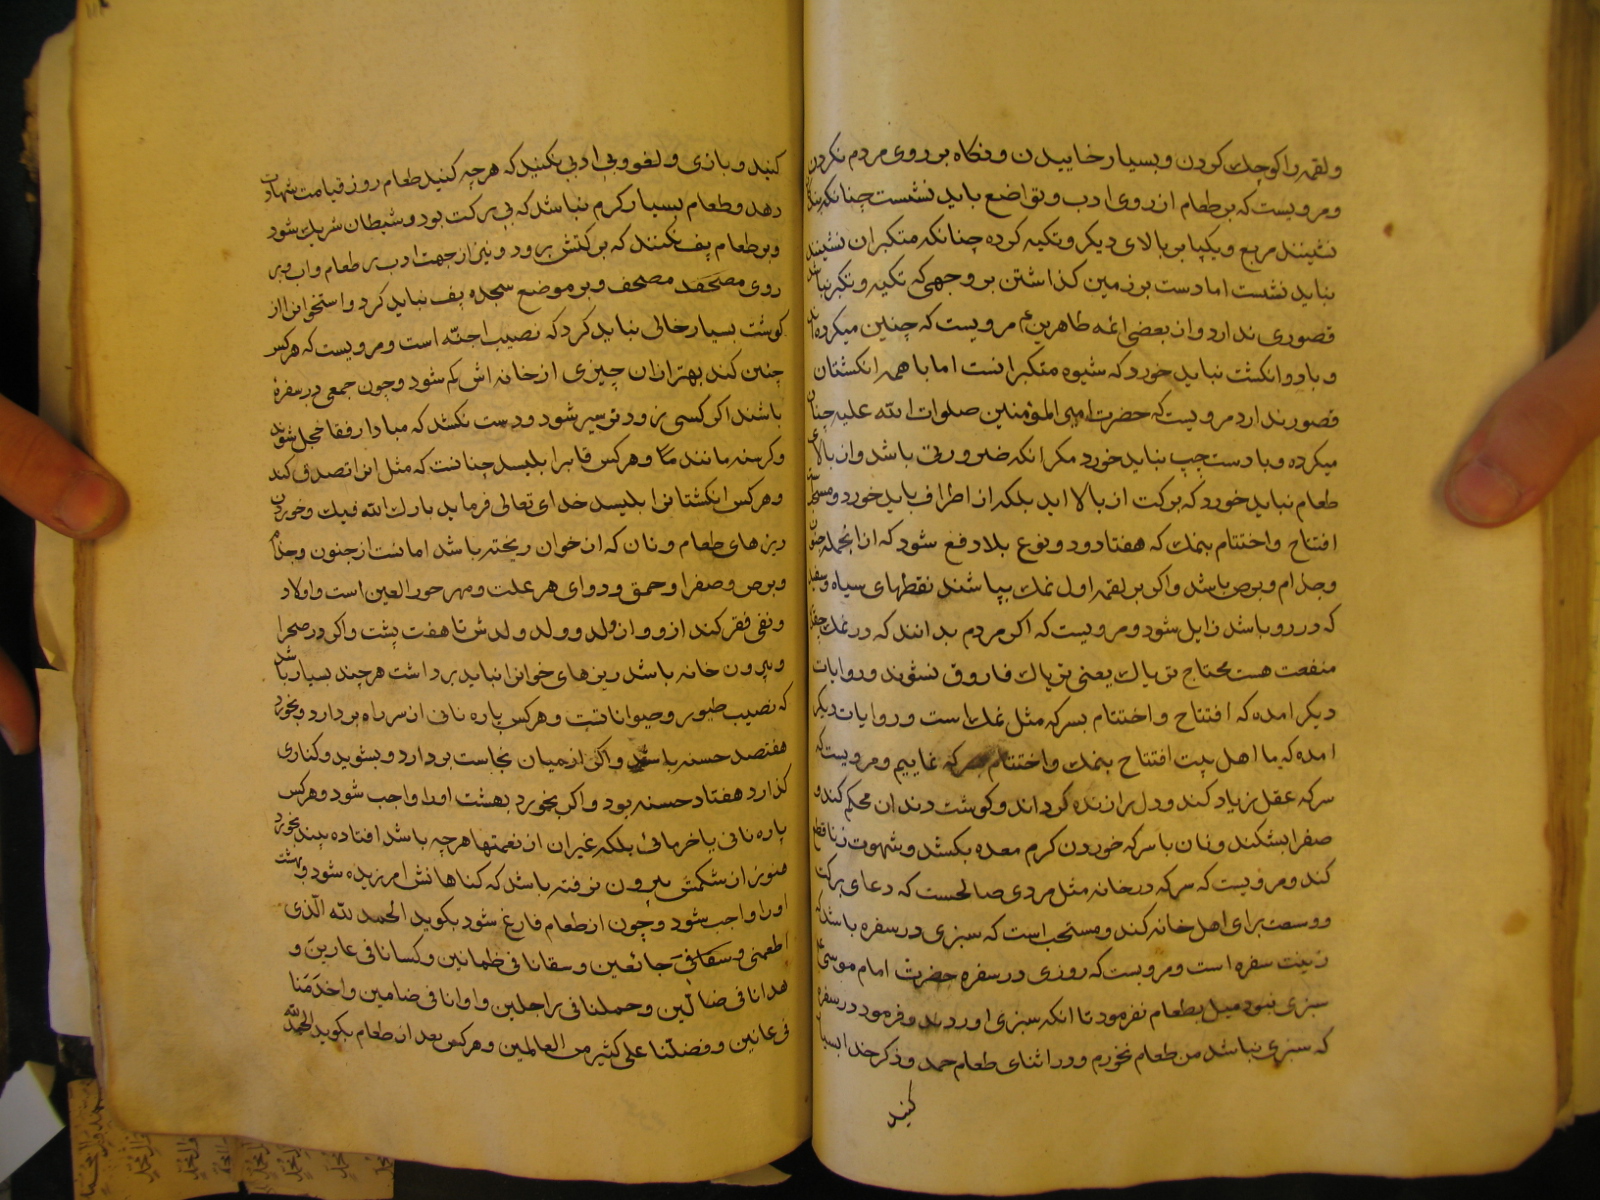 ولقمه را کوچک کردن و بسیار خاییدن و نکاه بر روی مردم نکردن
و مرویست که بر طعام از روی ادب و تواضع باید نشست چنانکه
نشینند مربع و یکپا بر بالای دیکر و تکیه کرده چنانکه متکبران نشینند
نباید نشست اما دست بر زمین کذاشتن بر وجهی که تکیه و تکبر نباشد
قصوری ندارد و از بعضی ائمه طاهرین ع مرویست که چنین میکرده اند
و با دو انکشت نباید خورد که شیوه متکبرانست اما با همه انکشتان
قصور ندارد مرویست که حضرت امیر المؤمنین صلوات الله علیه چنان
میکرده و با دست چپ نباید خورد مکر انکه ضرورتی باشد و از بالای
طعام نباید خورد که برکت از بالا اید بلکه از اطراف باید خورد و
افتتاح و اختتام بنمک که هفتاد و دو نوع بلا دفع شود که از انجمله
و جذام و برص باشد و اکر بر لقمه اول نمک بپاشند نقطهای سیاه و سفید
که در رو باشد زایل شود و مرویست که اکر مردم بدانند که در نمک چقدر
منفعت هست محتاج تریاک یعنی تریاک فاروق نشوند و روایات
دیکر امده که افتتاح و اختتام بسرکه مثل نمک است و روایات دیکر
امده که ما اهل بیت افتتاح بنمک و اختتام بسرکه نماییم و مرویست که
سرکه عقل زیاد کند و دل را زنده کرداند و کوشت دندان محکم کند و
صفرا بشکند و نان با سرکه خوردن کرم معده بکشد و شهوت زنا قطع
کند و مرویست که سرکه در خانه مثل مردی صالحست که دعای برکت
و وسعت برای اهل خانه کند و مستحب است که سبزی در سفره باشد که
زینت سفره است و مرویست که روزی در سفره حضرت امام موسی ع
سبزی نبود میل بطعام نفرمود تا انکه سبزی اوردند و فرمود در سفره
که سبزی نباشد من طعام نخورم و در اثنای طعام حمد و ذکر خدا بسیار
کنید
کنید و بازی و لغو و بی ادبی نکنید که هر چه کنید طعام روز قیامت شهادت
دهد و طعام بسیار کرم نباشد که بی برکت بود و شیطان شریک شود
و بر طعام پف نکنند که برکتش برود و نیز از جهت ادب بر طعام و اب و بر
روی مصحف و بر موضع سجده پف نباید کرد و استخوان را از
کوشت بسیار خالی نباید کرد که نصیب اجنّه است و مرویست که هر کس
چنین کند بهتر از ان چیزی از خانه اش کم شود و چون جمعی در سفرۀ
باشند اکر کسی زودتر سیر شود دست نکشد که مبادا رفقا خجل شوند
و کرسنه مانند و هر کس قاب را بلیسد چنانست که مثل انرا تصدق کند
و هر کس انکشتانرا بلیسد خدای تعالی فرماید بارک الله فیک و خوردن
ریزهای طعام و نان که از خوان ریخته باشد امانست از جنون و جذام
و برص و صفرا و حمق و دوای هر علت و مهر حور العین است و اولاد
و نفی فقر کند از و و از ولد و ولد ولدش تا هفت پشت و اکر در صحرا
و بیرون خانه باشد ریزهای خوانرا نباید برداشت هر چند بسیار باشد
که نصیب طیور و حیواناتست و هر کس پاره نانی از سر راه بردارد و بخورد
هفتصد حسنه باشد و اکر از میان نجاست بردارد و بشوید و کناری
کذارد هفتاد حسنه بود و اکر بخورد بهشت اورا واجب شود و هر کس
پاره نانی یا خرمائی بلکه غیر ان از نعمتها هر چه باشد افتاده بیند بخورد
هنوز از شکمش بیرون نرفته باشد که کناهانش امرزیده شود و بهشت
اورا واجب شود و چون از طعام فارغ شود بکوید الحمد لله الّذی
اطعمنی و سقانی جائعین و سقانا فی ظمانین و کسانا فی عارین و
هدانا فی ضالّین و حملنا فی راجلین و اوانا فی ضامین و اخدَمَنا
فی عانین و فضلّنا علی کثیر من العالمین و هر کس بعد از طعام بکوید الحمد لله